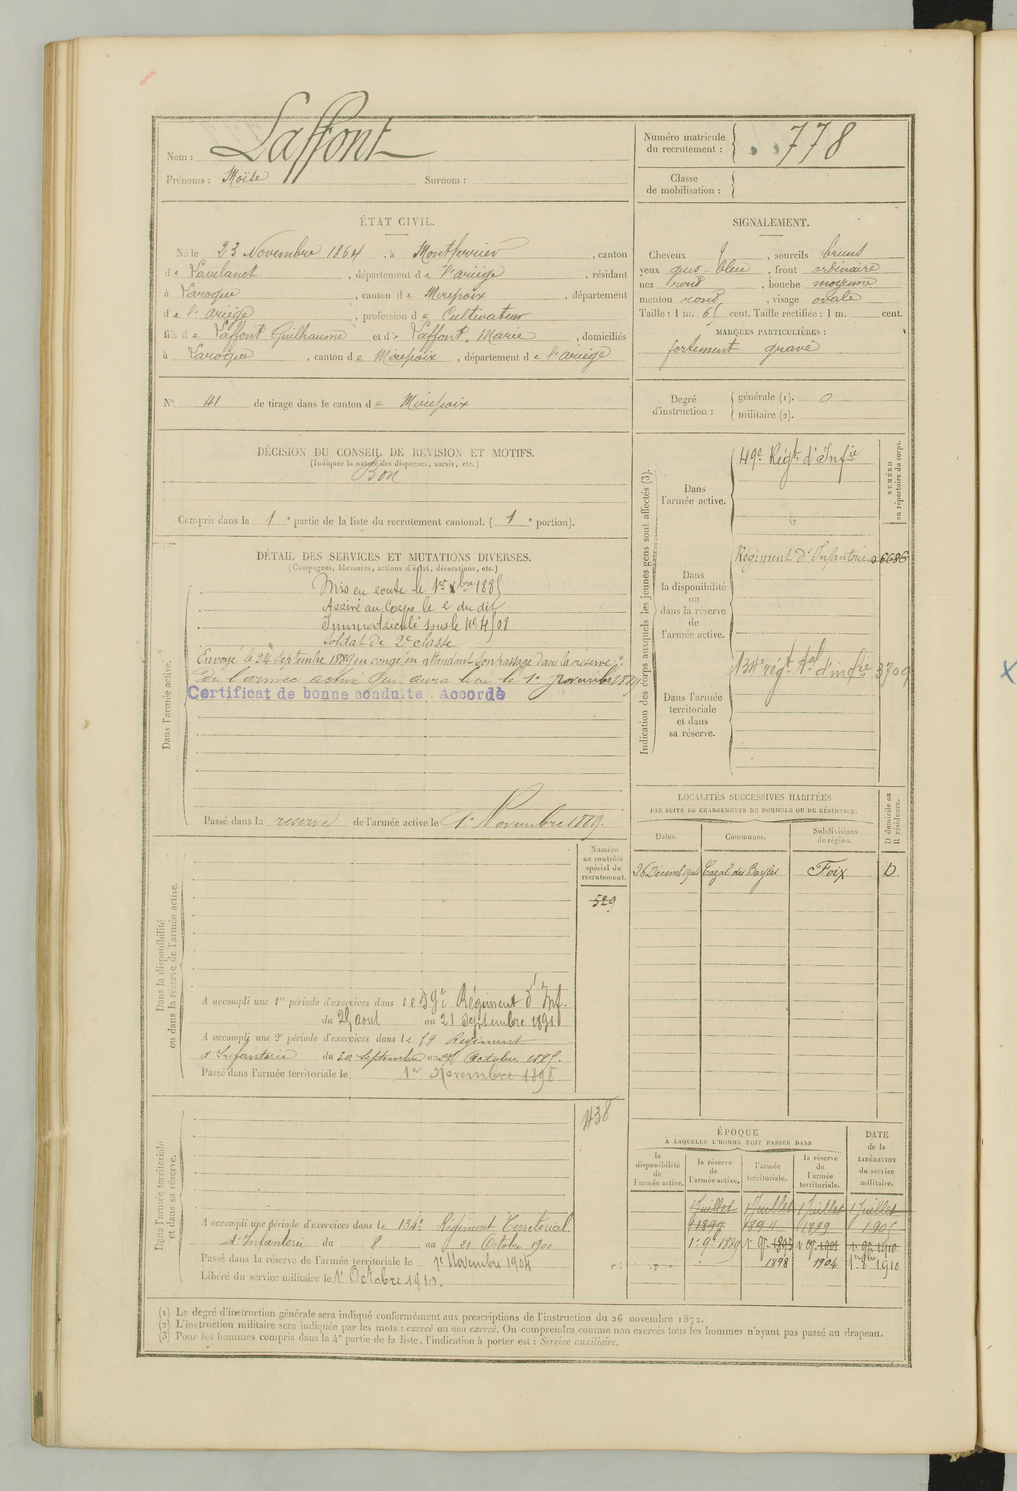 Nom : Laffont
Prénoms : Moïse Surnom :
Numéro matricule du recrutement : 778
Classe de mobilisation :
ÉTAT CIVIL.
Né le 23 Novembre 1864, à Montferrier, canton
de Lavelanet, département de l'ariège, résidant
à Laroque, canton de Mirepoix, département
de l'ariège, profession de Cultivateur
fils de Laffont Guilhaume et de Laffont, Marie, domiciliés
à Laroque, canton de Mirepoix, département de l'ariège
N° 41 de tirage dans le canton de Mirepoix
SIGNALEMENT.
Cheveux, sourcils bruns
yeux gris-bleu, front ordinaire
nez rond, bouche moyenne
menton rond, visage ovale
Taille : 1 m. 61 cent. Taille rectifiée : 1 m. cent.
MARQUES PARTICULIÈRES :
fortement gravé
Degré d'instruction : générale (1). 0
militaire (2).
DÉCISION DU CONSEIL DE REVISION ET MOTIFS.
(Indiquer la nature des dispenses, sursis, etc.)
Bon
Compris dans la 1e partie de la liste du recrutement cantonal. (1e portion).
DÉTAIL DES SERVICES ET MUTATIONS DIVERSES.
(Campagnes, blessures, actions d'éclat, décorations, etc.)
Dans l'armée active.
Mis en route le 1er Xbre 1885
Arrivé au Corps le 2 du dit
Immatriculé sous le N° 4508
Soldat de 2e classe
Envoyé le 24 septembre 1889 en congé en attendant son passage dans la réserve
de l'armée active qui aura lieu le 1er novembre 1889
Certificat de bonne conduite Accordé
Passé dans la réserve de l'armée active le 1er Novembre 1889.
Indication des corps auxquels les jeunes gens sont affectés (3).
NUMÉRO au répertoire du corps.
Dans l'armée active.
49e Régt d'Infie
Dans la disponibilité ou dans la réserve de l'armée active.
Régiment d'Infanterie 06686
Dans l'armée territoriale et dans sa réserve.
134e régt tal d'infie 3709
LOCALITÉS SUCCESSIVES HABITÉES
PAR SUITE DE CHANGEMENTS DE DOMICILE OU DE RÉSIDENCE.
Dates. Communes. Subdivisions de région. D domicile ou R résidence.
26 Décemb 1904 Cazal des Bayles Foix D.
Dans la disponibilité ou dans la réserve de l'armée active.
Numéro au contrôle spécial du recrutement.
529
A accompli une 1re période d'exercices dans le 59e Régiment d'Inf.
du 25 aout au 21 Septembre 1891
A accompli une 2e période d'exercices dans le 59 Régiment
d'Infanterie du 30 Septembre au 27 Octobre 1895.
Passé dans l'armée territoriale le 1er Novembre 1898
Dans l'armée territoriale et dans sa réserve.
438
A accompli une période d'exercices dans le 134e Régiment Territorial
d'Infanterie du 8 au 21 Octobre 1900.
Passé dans la réserve de l'armée territoriale le 1er Novembre 1904
Libéré du service militaire le 1er Octobre 1910.
ÉPOQUE
À LAQUELLE L'HOMME DOIT PASSER DANS
DATE de la LIBÉRATION du service militaire.
la disponibilité de l'armée active. la réserve de l'armée active. l'armée territoriale. la réserve de l'armée territoriale.
1 Juillet 1 Juillet 1 Juillet 1 Juillet
1890 1894 1899 1905
1er 9e 1889 1er 9e 1895 1er 9e 1901 1er 9e 1910
1898 1904 1er 8bre 1910
(1) Le degré d'instruction générale sera indiqué conformément aux prescriptions de l'instruction du 26 novembre 1872.
(2) L'instruction militaire sera indiquée par les mots : exercé ou non exercé. On comprendra comme non exercés tous les hommes n'ayant pas passé au drapeau.
(3) Pour les hommes compris dans la 4e partie de la liste, l'indication à porter est : Service auxiliaire.